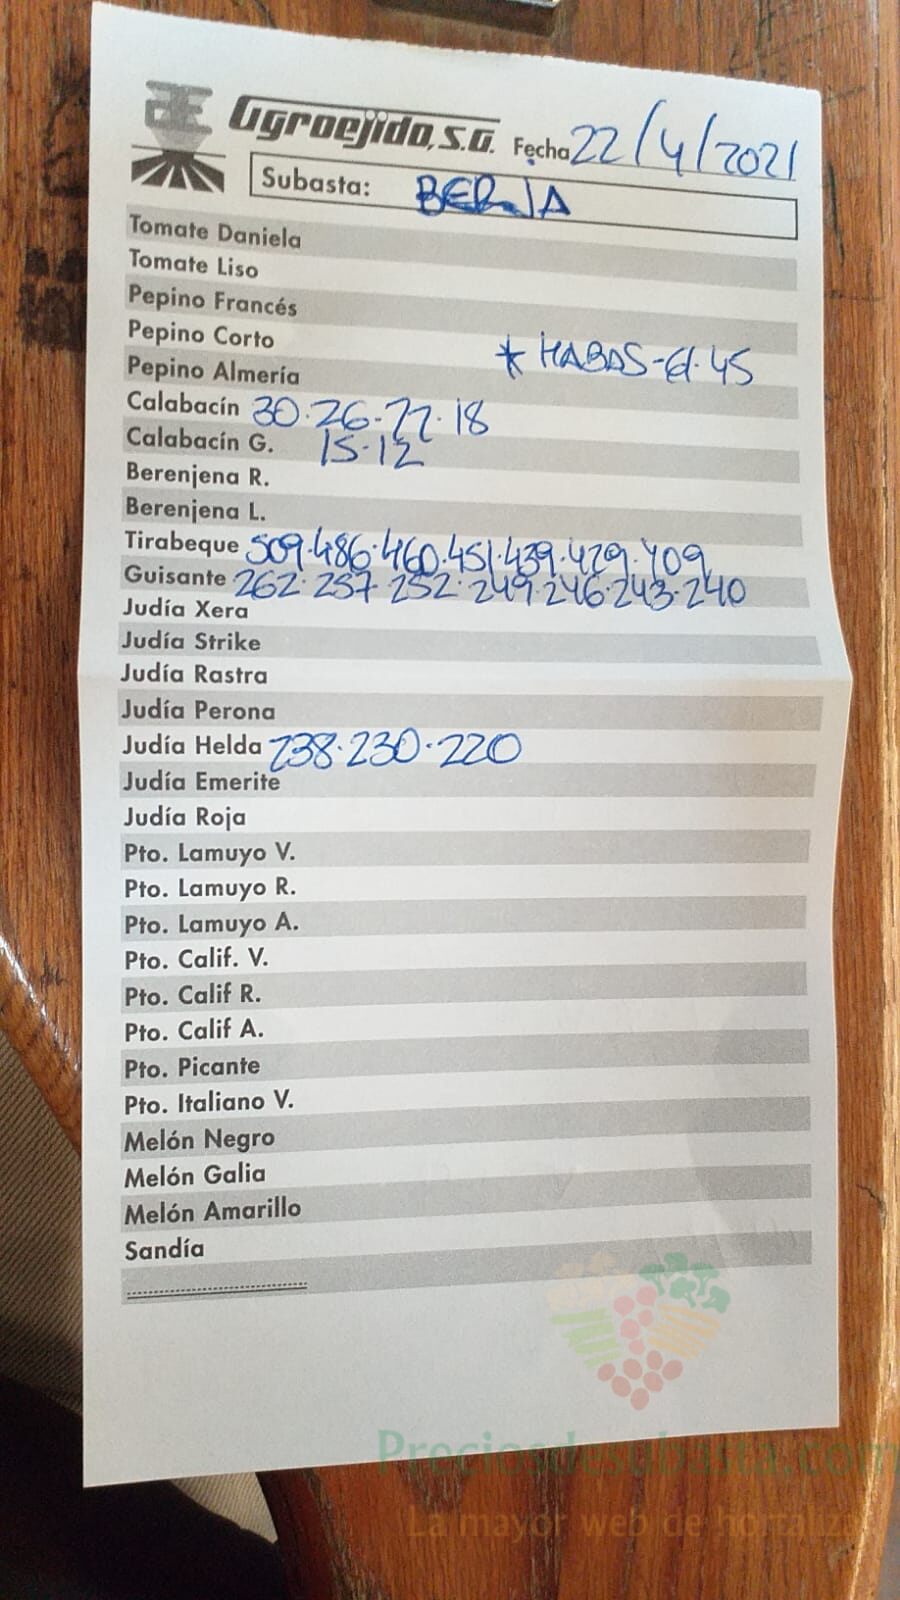 Agroejido, S.G. Fecha 22/4/2021
Subasta: BERJA
Tomate Daniela
Tomate Liso
Pepino Francés
Pepino Corto
* HABAS-61.45
Pepino Almería
Calabacín 30.26-22.18
Calabacín G. 15.12
Berenjena R.
Berenjena L.
Tirabeque 509.486.460.451.439.429.409
Guisante 262.257.252.249.246.243.240
Judía Xera
Judía Strike
Judía Rastra
Judía Perona
Judía Helda 238.230.220
Judía Emerite
Judía Roja
Pto. Lamuyo V.
Pto. Lamuyo R.
Pto. Lamuyo A.
Pto. Calif. V.
Pto. Calif R.
Pto. Calif A.
Pto. Picante
Pto. Italiano V.
Melón Negro
Melón Galia
Melón Amarillo
Sandía
Preciosdesubasta.com
La mayor web de hortaliza